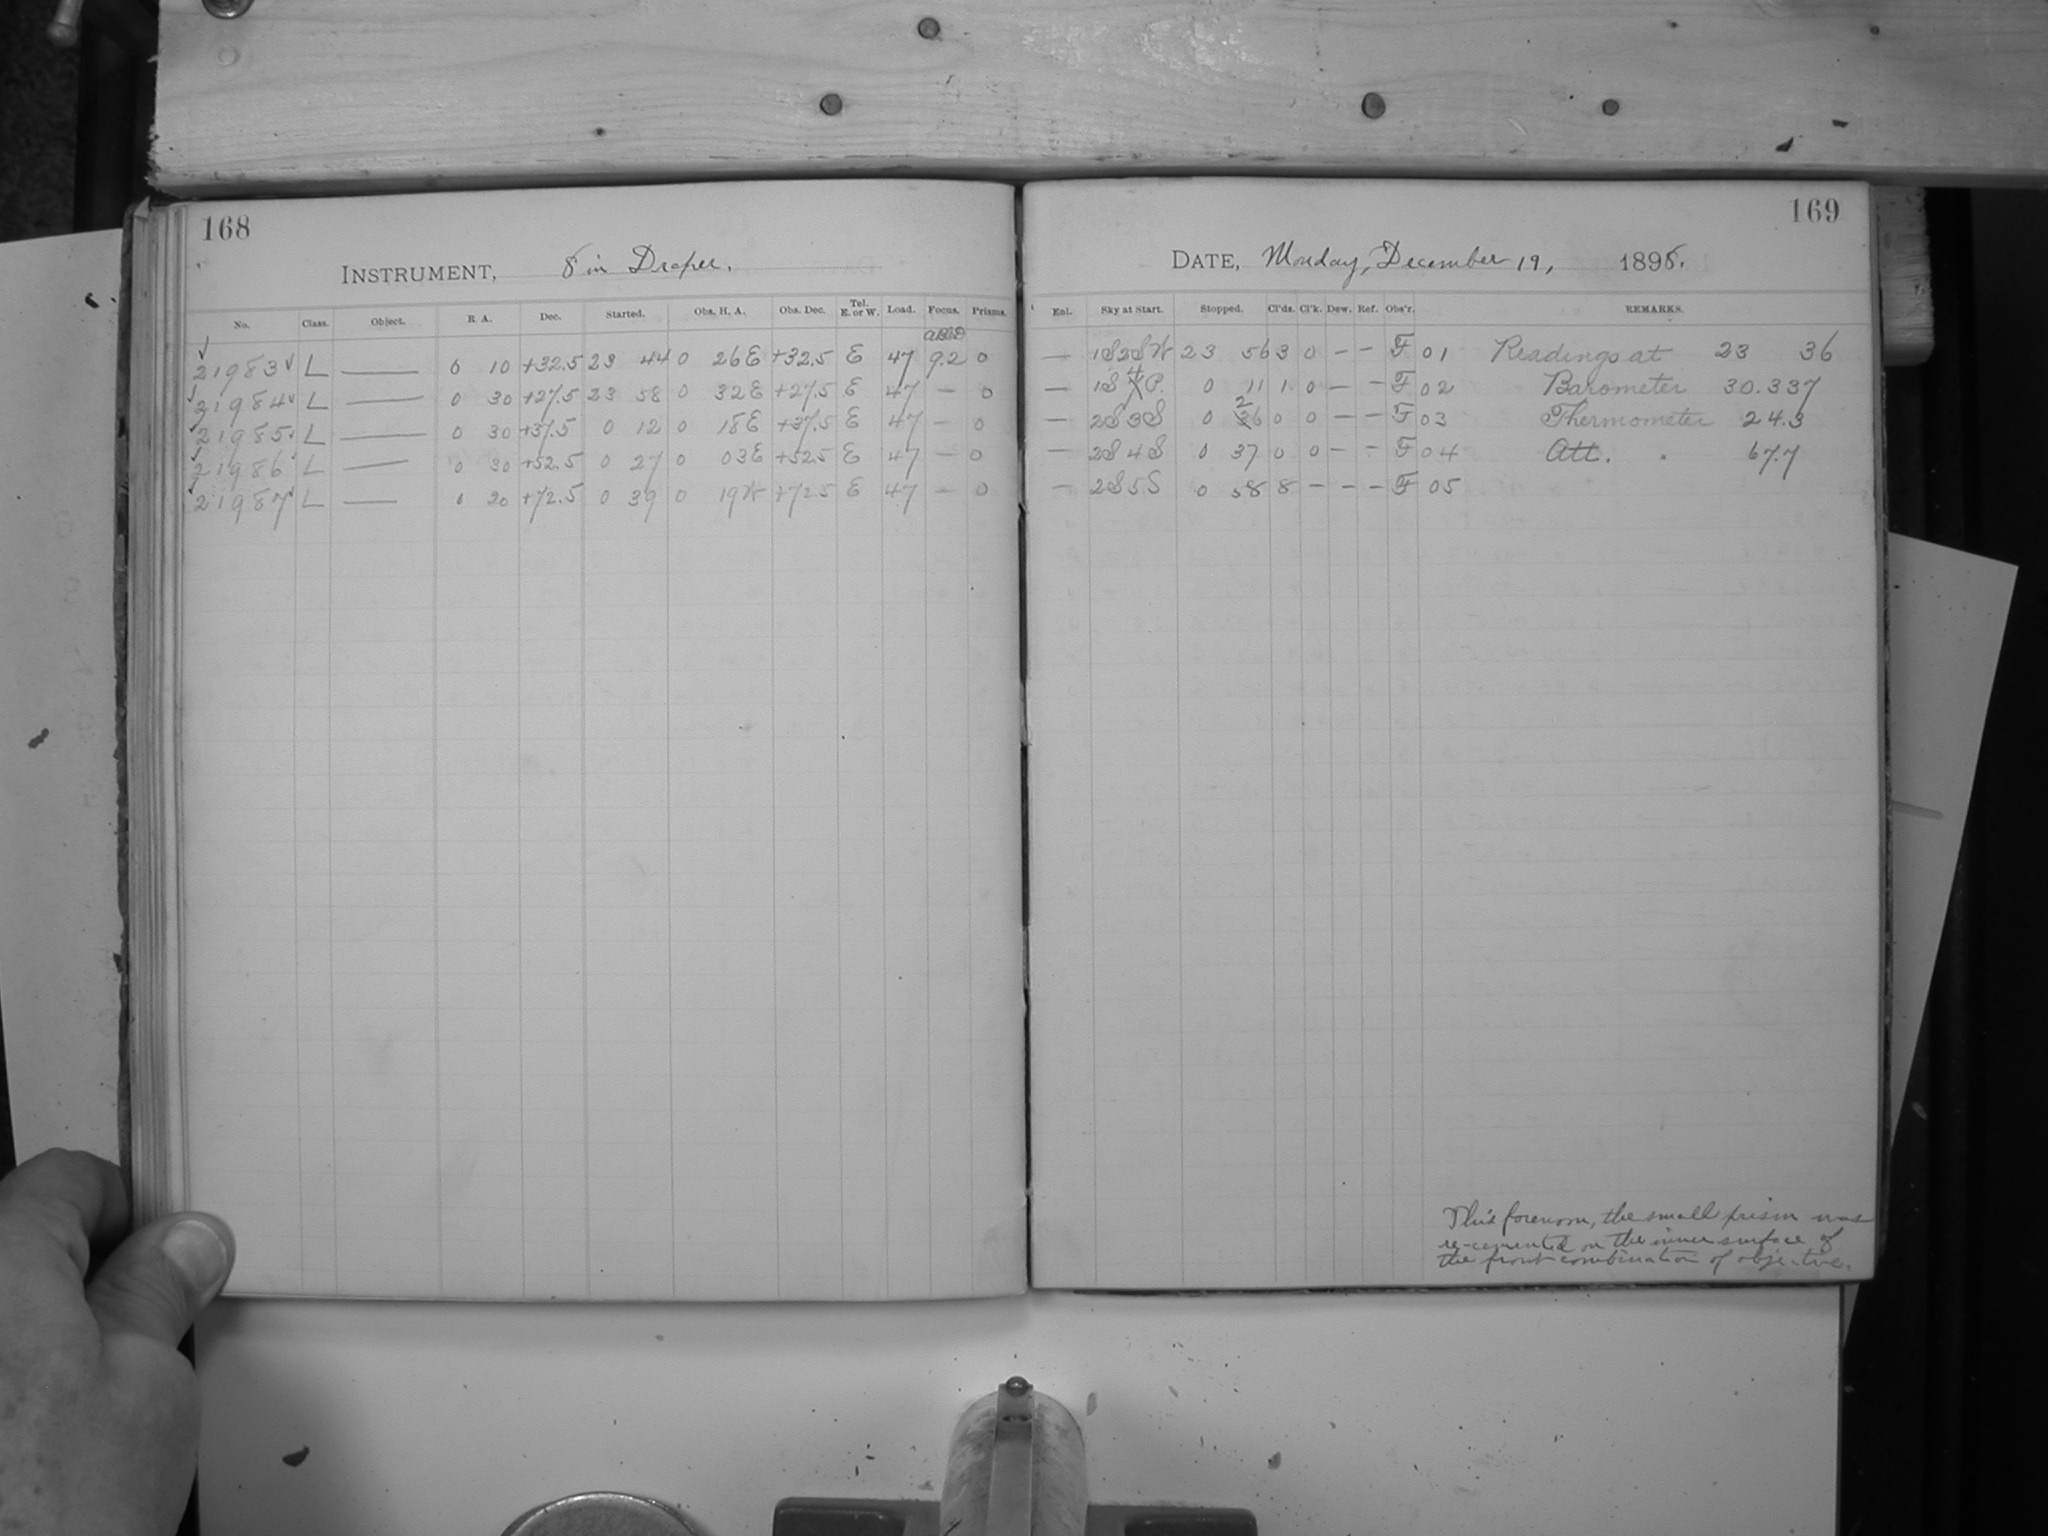 168
INSTRUMENT, 8 in Draper.
No. Class. Object. R A. Dec. Started. Obs. H. A. Obs. Dec. Tel. E. or W. Load. Focus. Prisms.
21983 L — 0 10 +32.5 23 44 0 26E +32.5 E 47 9.2 0
21984 L — 0 30 +27.5 23 58 0 32E +27.5 E 47 — 0
21985 L — 0 30 +37.5 0 12 0 18E +37.5 E 47 — 0
21986 L — 0 30 +52.5 0 27 0 03E +52.5 E 47 — 0
21987 L — 0 20 +72.5 0 39 0 19W +72.5 E 47 — 0
169
DATE, Monday, December 19, 1898.
Enl. Sky at Start. Stopped. Cl'ds. Cl'k. Dew. Ref. Obs'r. REMARKS.
— 1S2SW 23 56 3 0 — — F 01 Readings at 23 36
— 1S 4 P. 0 11 1 0 — — F 02 Barometer 30.337
— 2S3S 0 26 0 0 — — F 03 Thermometer 24.3
— 2S4S 0 37 0 0 — — F 04 Att. " 67.7
— 2S5S 0 58 8 — — — F 05
This forenoon, the small prism was
re-cemented on the inner surface of
the front combination of objective.